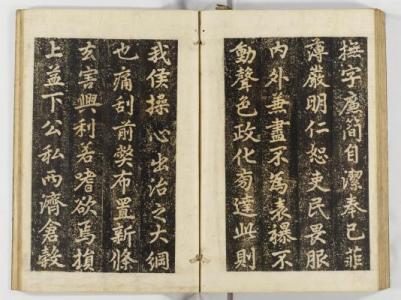 撫字廉簡自潔奉己菲
薄嚴明仁恕吏民畏服
內外兼盡不為表襮不
動聲色政化旁達此則
我侯操心出治之大綱
也痛刮前弊布置新條
去害興利若嗜欲焉損
上益下公私兩濟倉穀